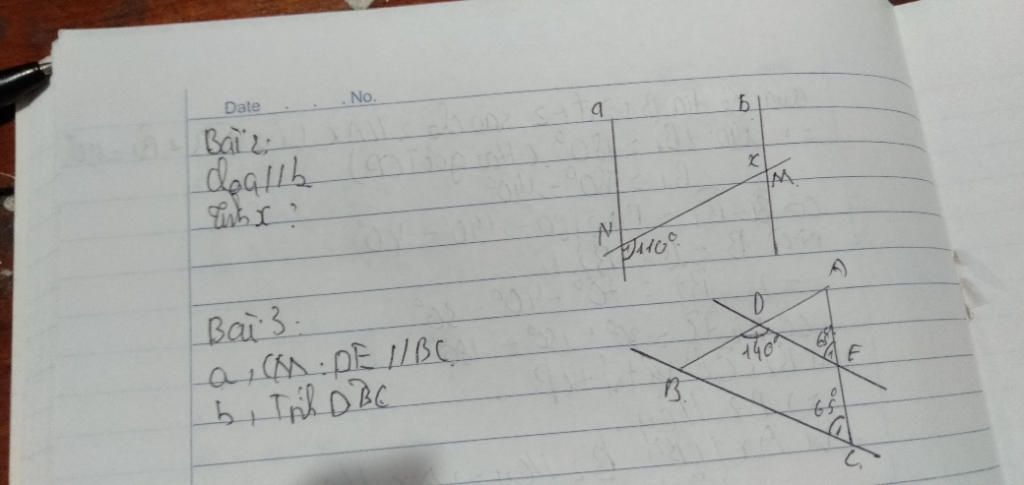 Date . . . .No.
Bài 2:
a//b
Tính x ?
a
b
x
M
N
110°
Bài 3:
a, CM : DE // BC
b, Tính DBC
A
D
140°
65°
1
E
B
65°
1
C